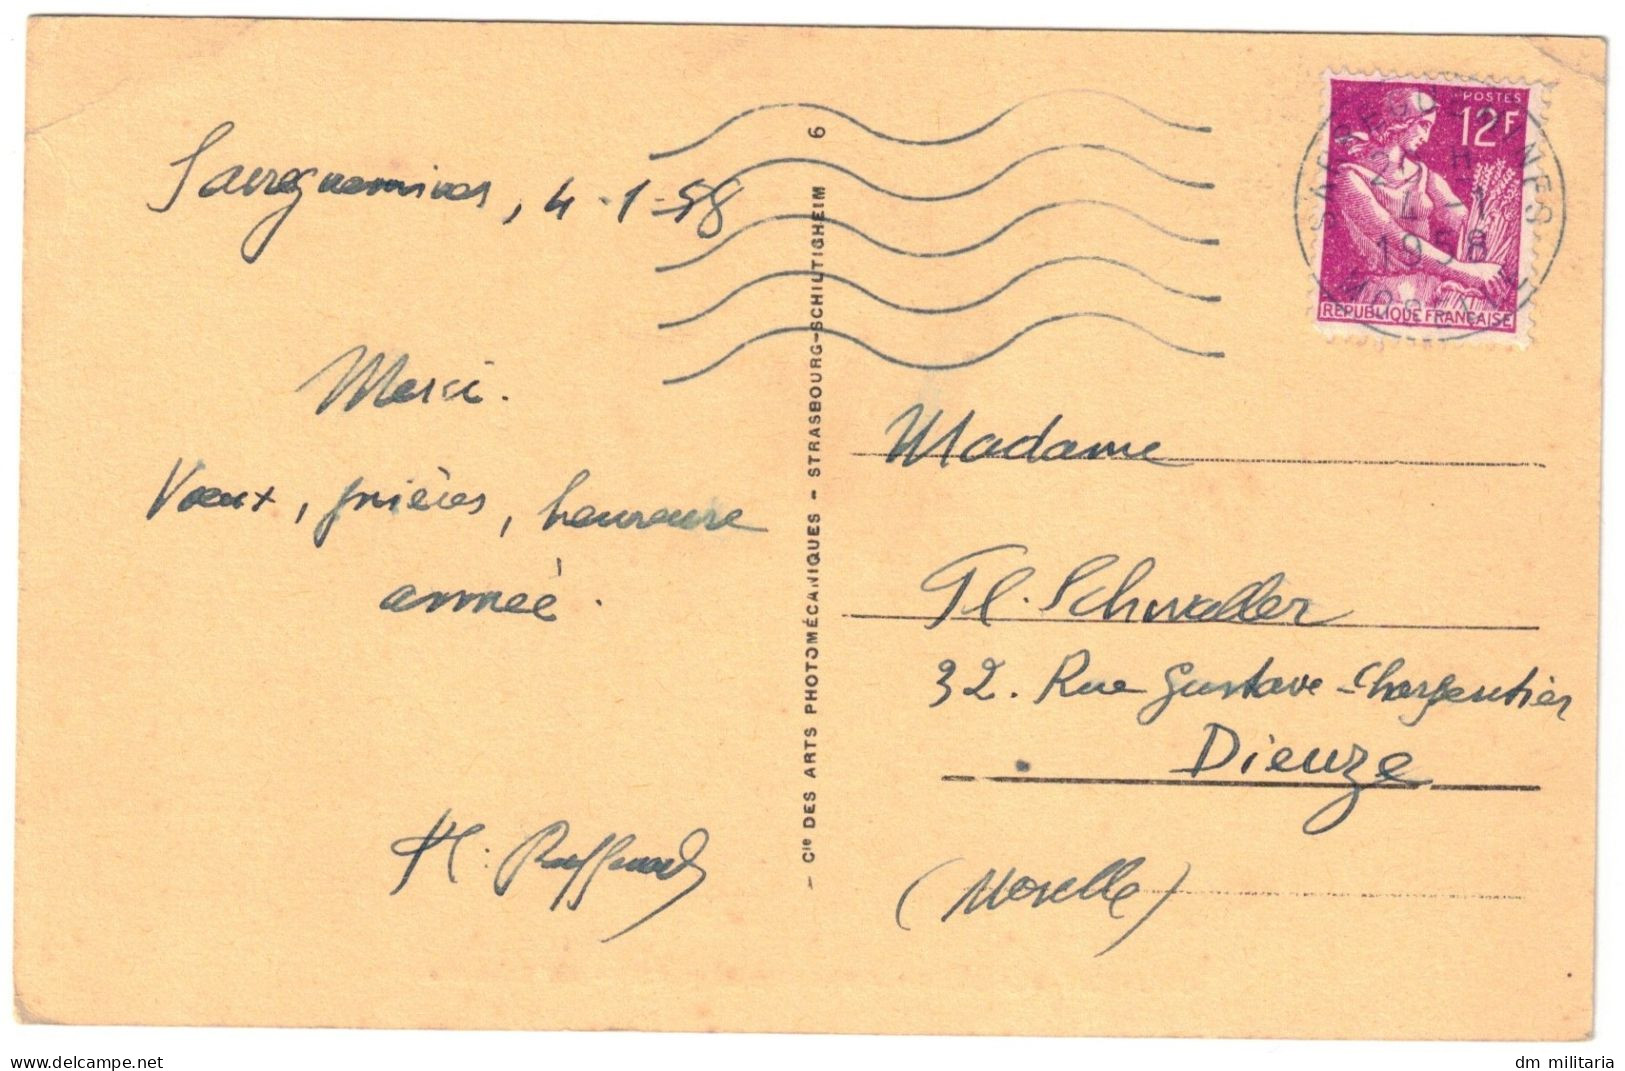 Sarreguemines, 4-1-58
Merci.
Vœux, prières, heureuse
année.
H.
- Cie DES ARTS PHOTOMÉCANIQUES - STRASBOURG-SCHILTIGHEIM 6
POSTES
12F
REPUBLIQUE FRANÇAISE
SARREGUEMINES
4 -1
1958
MOSELLE
Madame
Pl. Schwaller
32. Rue Gustave-Charpentier
Dieuze
(Moselle)
www.delcampe.net
dm militaria